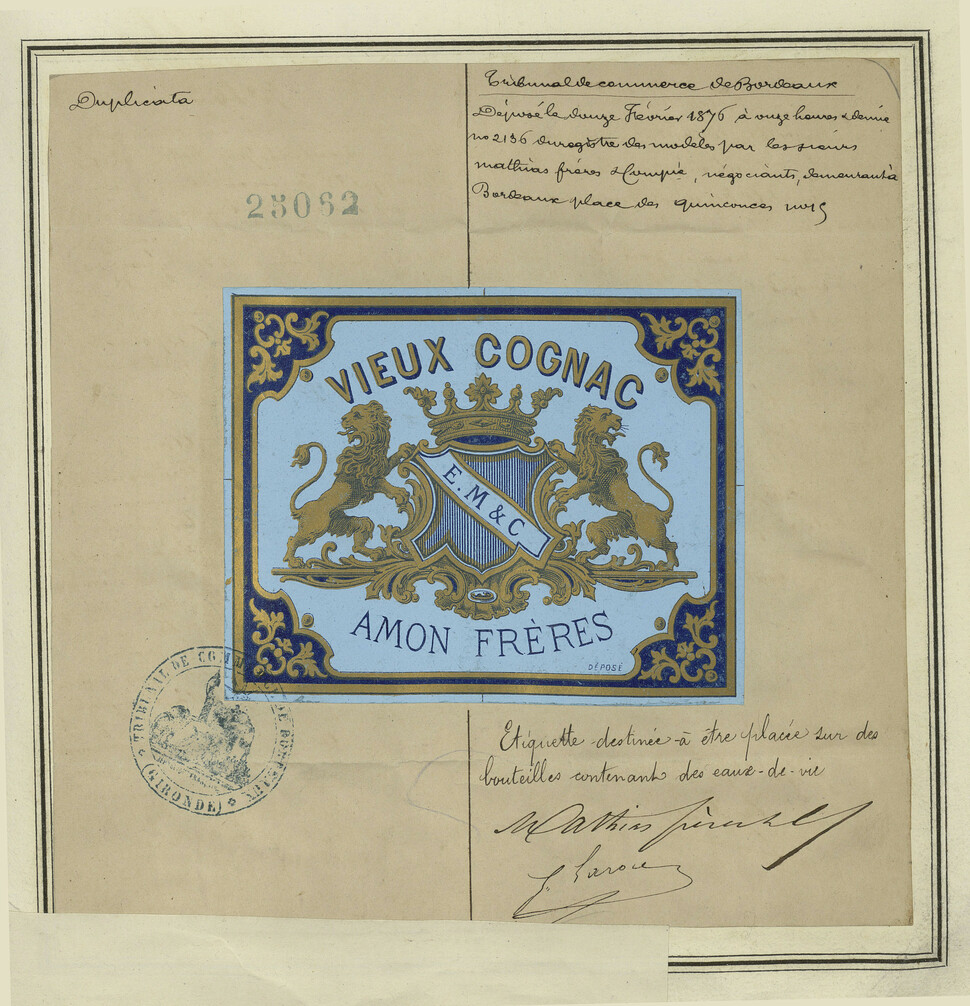 Duplicata
Tribunal de commerce de Bordeaux
Déposé le douze Février 1876 à onze heures & demie
no 2136 du registre des modèles par les sieurs
mathias frères & Compie, négociants, demeurant à
Bordeaux place des quinconces no
25062
VIEUX COGNAC
E. M & C
AMON FRÈRES
DÉPOSÉ
TRIBUNAL DE COMMERCE DE BORDEAUX
(GIRONDE)
Etiquette destinée à être placée sur des
bouteilles contenant des eaux-de-vie
Mathias frères